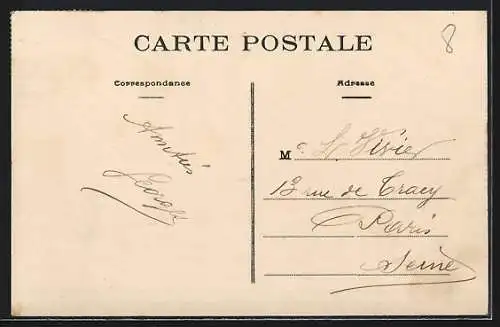 8
CARTE POSTALE
Correspondance
Adresse
Amitiés
M
13 rue de Tracy
Paris
Seine